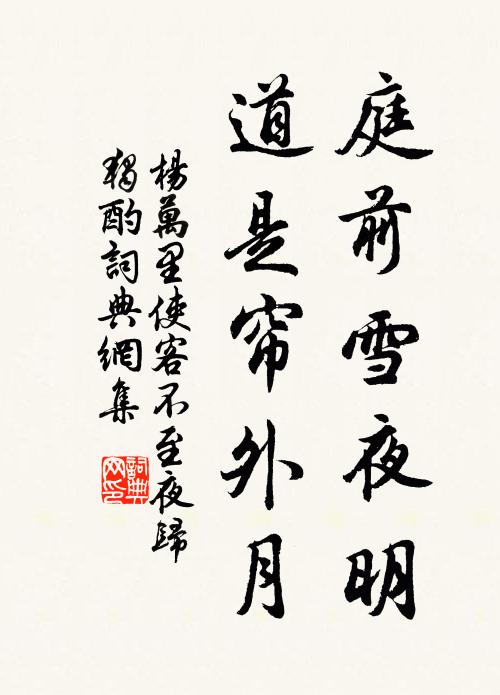 庭前雪夜明
道是帘外月
楊萬里使客不至夜歸
獨酌詞典網集
詞典
网印